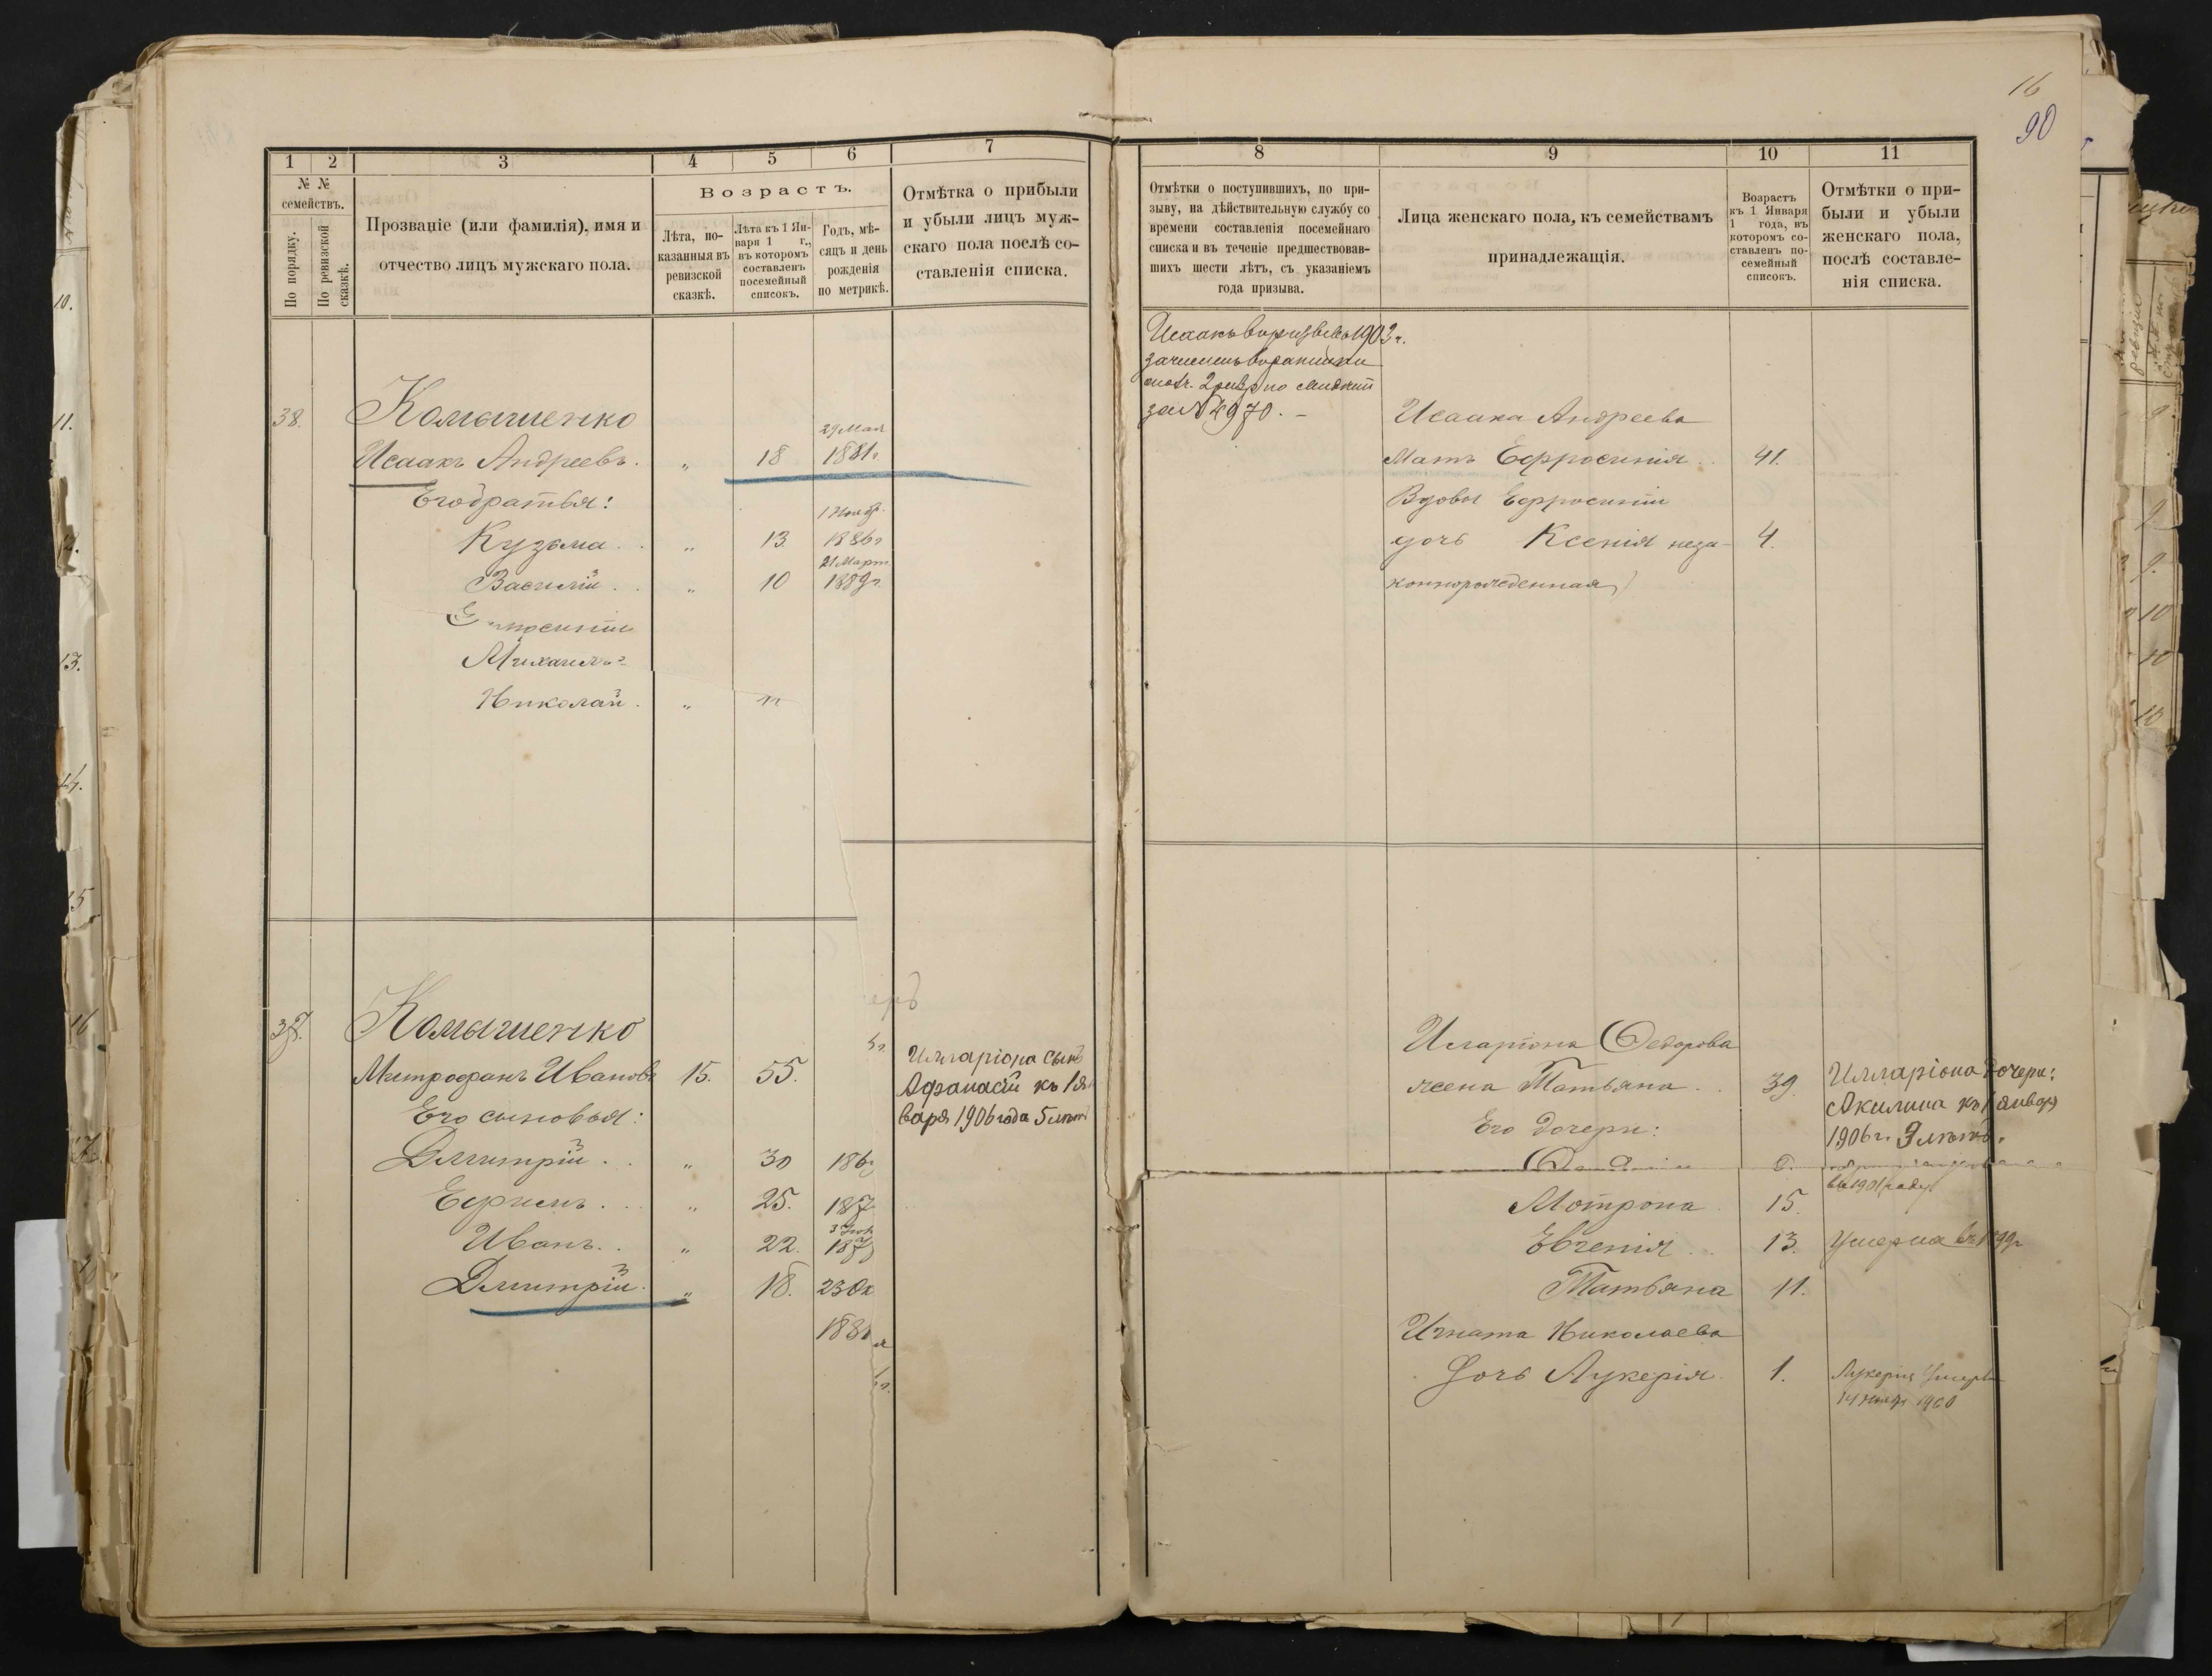 16
90
1
2
3
4
5
6
7
№ №
семействъ.
По порядку.
По ревизской
сказкѣ.
Прозваніе (или фамилія), имя и
отчество лицъ мужскаго пола.
Возрастъ.
Лѣта, по-
казанныя въ
ревизской
сказкѣ.
Лѣта къ 1 Ян-
варя 1 г.,
въ которомъ
составленъ
посемейный
списокъ.
Годъ, мѣ-
сяцъ и день
рожденія
по метрикѣ.
Отмѣтка о прибыли
и убыли лицъ муж-
скаго пола послѣ со-
ставленія списка.
38.
Комышенко
29 Мая
Исаакъ Андреевъ. „ 18 1881г.
Его братья:
1 Нояб.
Кузьма . . „ 13 1886г
21 Март.
Василій . . „ 10 1889г.
Михаилъ
Николай . „
Комышенко
Митрофанъ Ивановъ 15. 55.
Его сыновья:
Дмитрій . . „ 30 186
Ефимъ . . „ 25. 187
Иванъ . . „ 22. 187
Дмитрій . „ 18. 23 Ок
188
Илларіона сынъ
Афанасій къ 1 Ян
варя 1906 года 5 лѣтъ
8
9
10
11
Отмѣтки о поступившихъ, по при-
зыву, на дѣйствительную службу со
времени составленія посемейнаго
списка и въ теченіе предшествовав-
шихъ шести лѣтъ, съ указаніемъ
года призыва.
Лица женскаго пола, къ семействамъ
принадлежащія.
Возрастъ
къ 1 Января
1 года, въ
которомъ со-
ставленъ по-
семейный
списокъ.
Отмѣтки о при-
были и убыли
женскаго пола,
послѣ составле-
нія списка.
Исаакъ въ призывъ 1903 г.
зачисленъ въ ратники
за № 4970. –
Исаака Андреева
Мать Ефросинія . . 41.
Вдовы Ефросиніи
дочь Ксенія неза- 4.
коннорожденная
Иларіона Федорова
жена Татьяна . 39.
Его дочери:
Мотрона 15.
Евгенія . . 13.
Татьяна 11.
Игната Николаева
Дочь Лукерія . 1.
Илларіона дочери:
Акилина къ 1 января
1906 г. 9 лѣтъ.
въ 1901 году
Умерла въ 1899г
Лукерія Умерла
14 1900